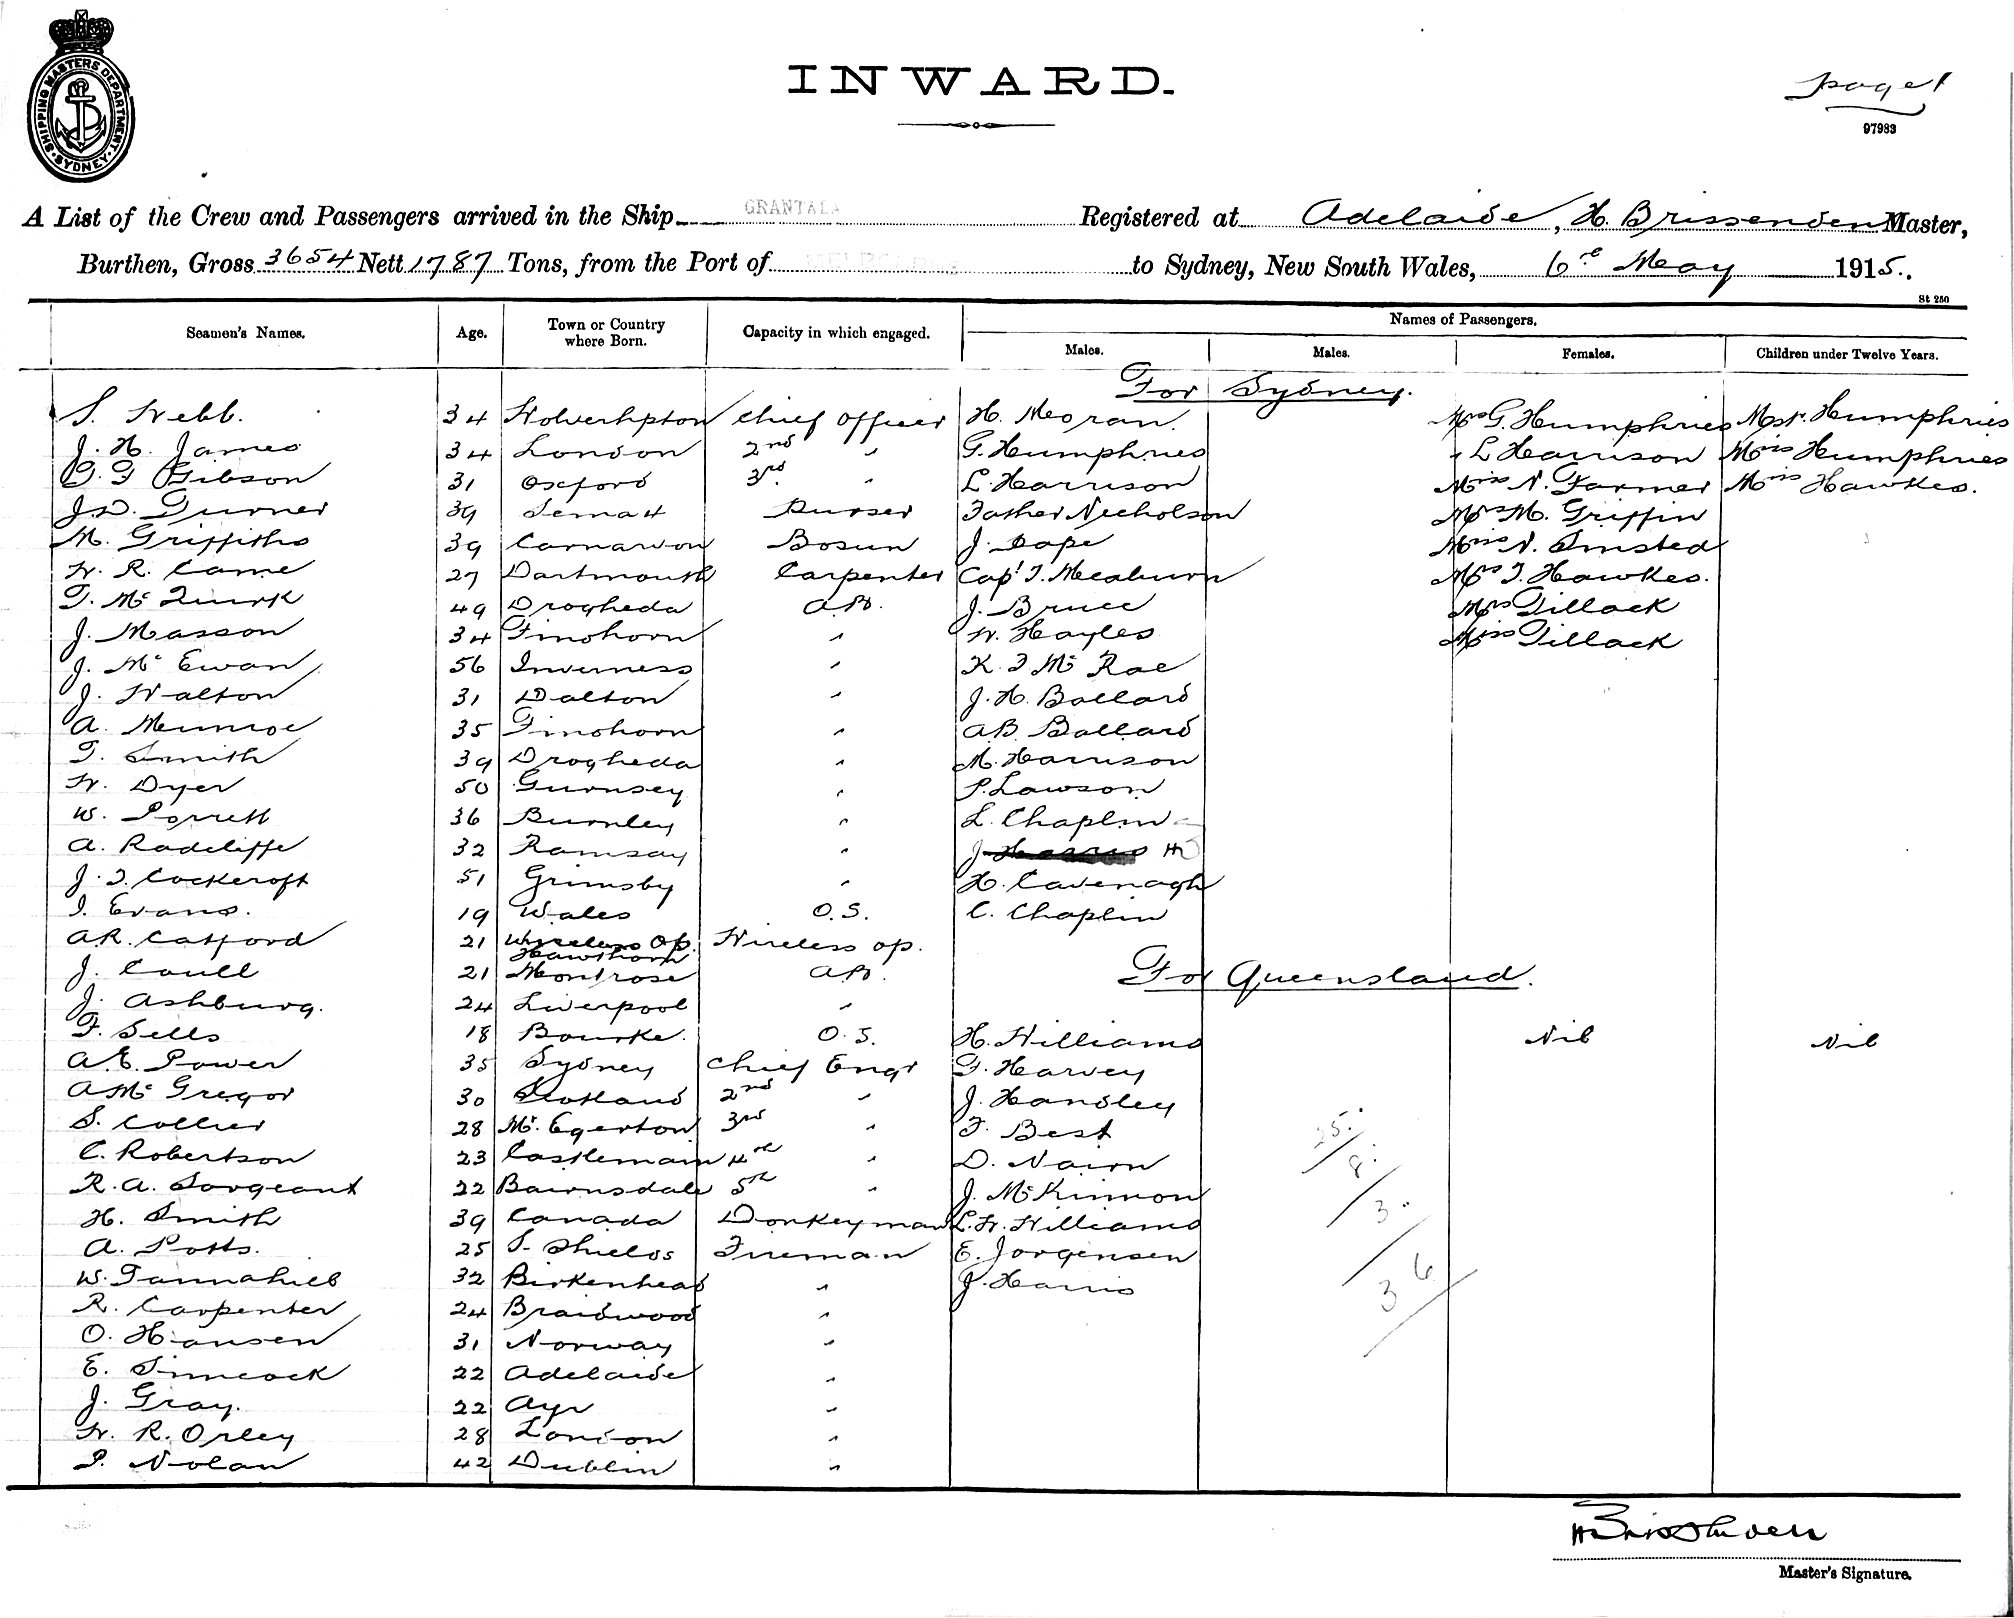 SHIPPING MASTERS DEPARTMENT SYDNEY
INWARD.
page 1
97983
A List of the Crew and Passengers arrived in the Ship GRANTALA Registered at Adelaide, H. Brissenden Master,
Burthen, Gross 3654 Nett 1787 Tons, from the Port of MELBOURNE to Sydney, New South Wales, 6th May 1915.
St 250
Seamen's Names. Age. Town or Country where Born. Capacity in which engaged. Names of Passengers.
Males. Males. Females. Children under Twelve Years.
For Sydney.
S. Webb. 34 Wolverhpton Chief Officer H. Moran. Mrs G. Humphries Mstr. Humphries
J. H. James 34 London 2nd " G. Humphries " L Harrison Miss Humphries
G. G Gibson 31 Oxford 3rd. " L. Harrison Miss N. Farmer Miss Hawkes.
J. D. Turner 39 Purser Father Nicholson Mrs M. Griffin
M. Griffiths 39 Carnarvon Bosun J. Pape Miss N. Omsted
W. R. Came 27 Dartmouth Carpenter Capt J. Meaburn Mrs J. Hawkes.
T. Mc Quirk 49 Drogheda A.B. J. Bruce Mrs Tillack
J. Masson 34 Finohorn " W. Hayles Miss Tillack
J. Mc Ewan 56 Inverness " K. J Mc Rae
J. Walton 31 Dalton " J. H. Ballard
A. Munroe 35 Finohorn " A B. Ballard
T. Smith 39 Drogheda " M. Harrison
W. Dyer 50 Gurnsey " P. Lawson
W. Porrett 36 Burnley " L. Chaplin
A. Radcliffe 32 Ramsay " J Harris
J. T. Cockcroft 51 Grimsby " H. Cavenagh
I. Evans. 19 Wales O.S. C. Chaplin
A.R. Catford 21 Wireless Op. Hawthorn Wireless Op.
J. Coull 21 Montrose A.B.
For Queensland.
J. Ashburg. 24 Liverpool "
F. Sells 18 Bourke. O.S. H. Williams Nil Nil
A. E. Power 35 Sydney Chief Engr F. Harvey
A Mc Gregor 30 Scotland 2nd " J. Handley
S. Collier 28 Mt. Egerton 3rd " F. Best 25.
C. Robertson 23 Castlemain 4th " D. Nairn 8.
R. A. Sargeant 22 Bairnsdale 5th " J. McKinnon
H. Smith 39 Canada Donkeyman L. W. Williams 3.
A. Potts. 25 S. Shields Fireman E. Jorgensen
W. Tannahill 32 Birkenhead " J. Harris 36
R. Carpenter 24 Braidwood "
O. Hansen 31 Norway "
E. Simcock 22 Adelaide "
J. Gray. 22 Ayr "
W. R. Orley 28 London "
P. Nolan 42 Dublin "
H Brissenden
Master's Signature.